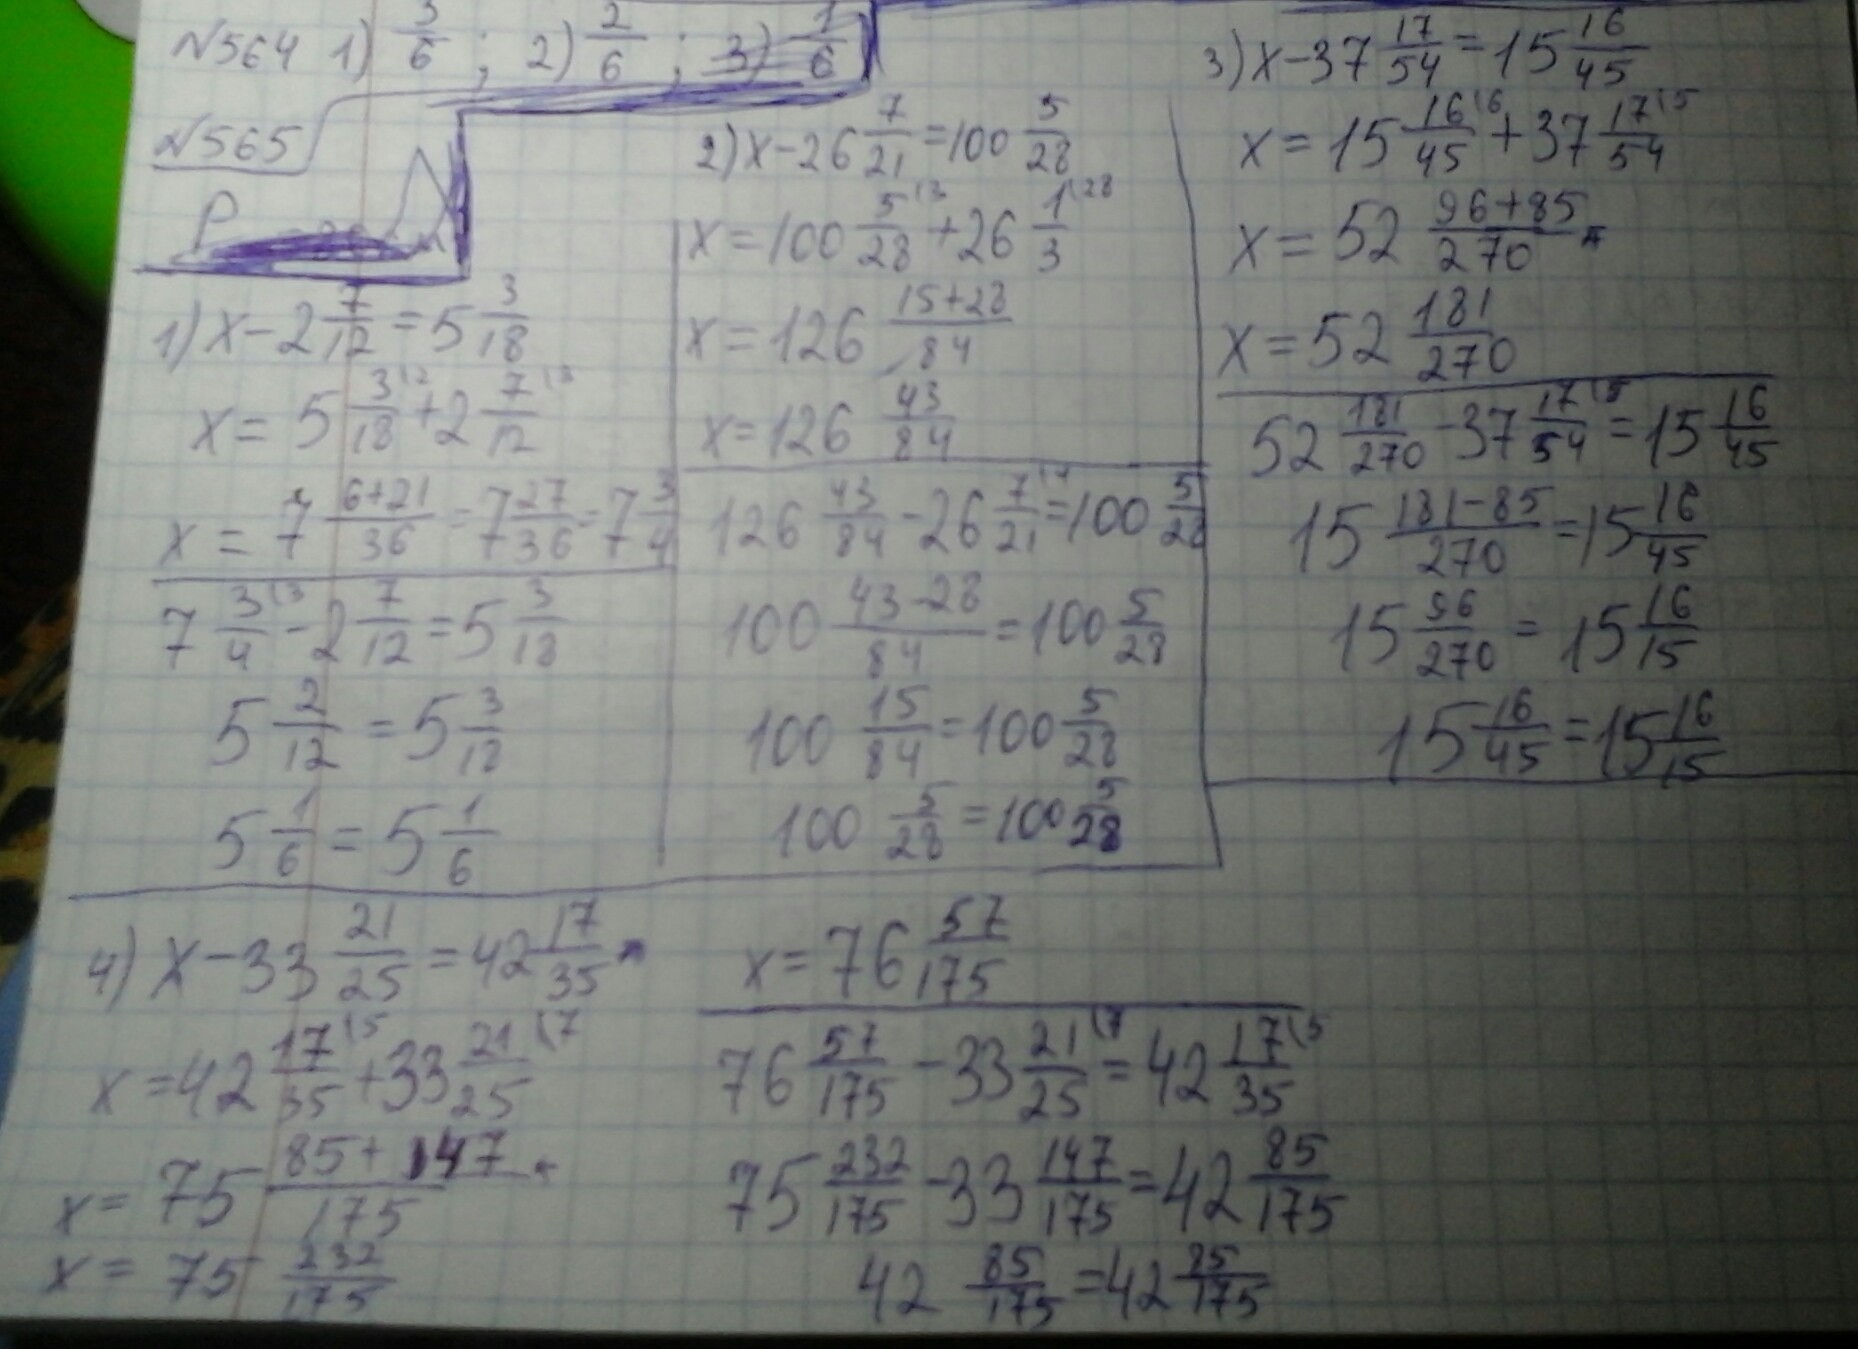 №564 1) 3/6 ; 2) 2/6 ; 3) 1/6
№565
P
1) x-2 7/12 = 5 3/18
x = 5 3/18 \2 + 2 7/12 \3
x = 7 6+21/36 = 7 27/36 = 7 3/4
7 3/4 \3 - 2 7/12 = 5 3/18
5 2/12 = 5 3/18
5 1/6 = 5 1/6
2) x-26 7/21 = 100 5/28
x = 100 5/28 \3 + 26 1/3 \28
x = 126 15+28/84
x = 126 43/84
126 43/84 - 26 7/21 \4 = 100 5/28
100 43-28/84 = 100 5/28
100 15/84 = 100 5/28
100 5/28 = 100 5/28
3) x-37 17/54 = 15 16/45
x = 15 16/45 \6 + 37 17/54 \5
x = 52 96+85/270
x = 52 181/270
52 181/270 - 37 17/54 \5 = 15 16/45
15 181-85/270 = 15 16/45
15 96/270 = 15 16/15
15 16/45 = 15 16/15
4) x-33 21/25 = 42 17/35
x = 42 17/35 \5 + 33 21/25 \7
x = 75 85+147/175
x = 75 232/175
x = 76 57/175
76 57/175 - 33 21/25 \7 = 42 17/35 \5
75 232/175 - 33 147/175 = 42 85/175
42 85/175 = 42 85/175